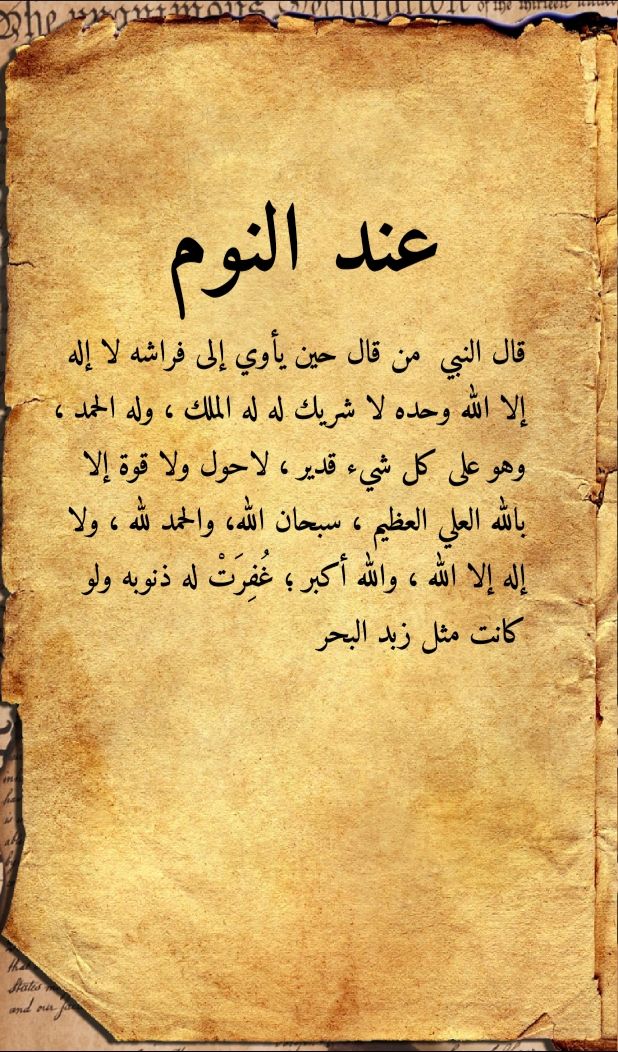 The unanimous Declaration of the thirteen united
عند النوم
قال النبي من قال حين يأوي إلى فراشه لا إله
إلا الله وحده لا شريك له له الملك ، وله الحمد ،
وهو على كل شيء قدير ، لاحول ولا قوة إلا
بالله العلي العظيم ، سبحان الله، والحمد لله ، ولا
إله إلا الله ، والله أكبر ؛ غُفِرَتْ له ذنوبه ولو
كانت مثل زبد البحر
States
and our